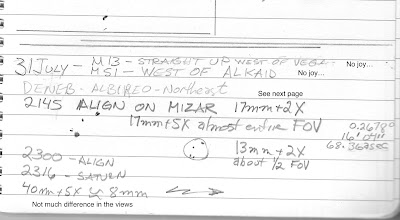 31 July - M13 - STRAIGHT UP WEST OF VEGA. No joy...
M51 - WEST OF ALKAID No joy...
DENEB - ALBIREO - Northeast
See next page
2145 ALIGN ON MIZAR 17mm + 2X
17mm + 5X almost entire FOV
0.2678°
16' 04"
68.36asec
13mm + 2X
about 1/2 FOV
2300 - ALIGN
2316 - SATURN
40mm + 5X 8mm
Not much difference in the views